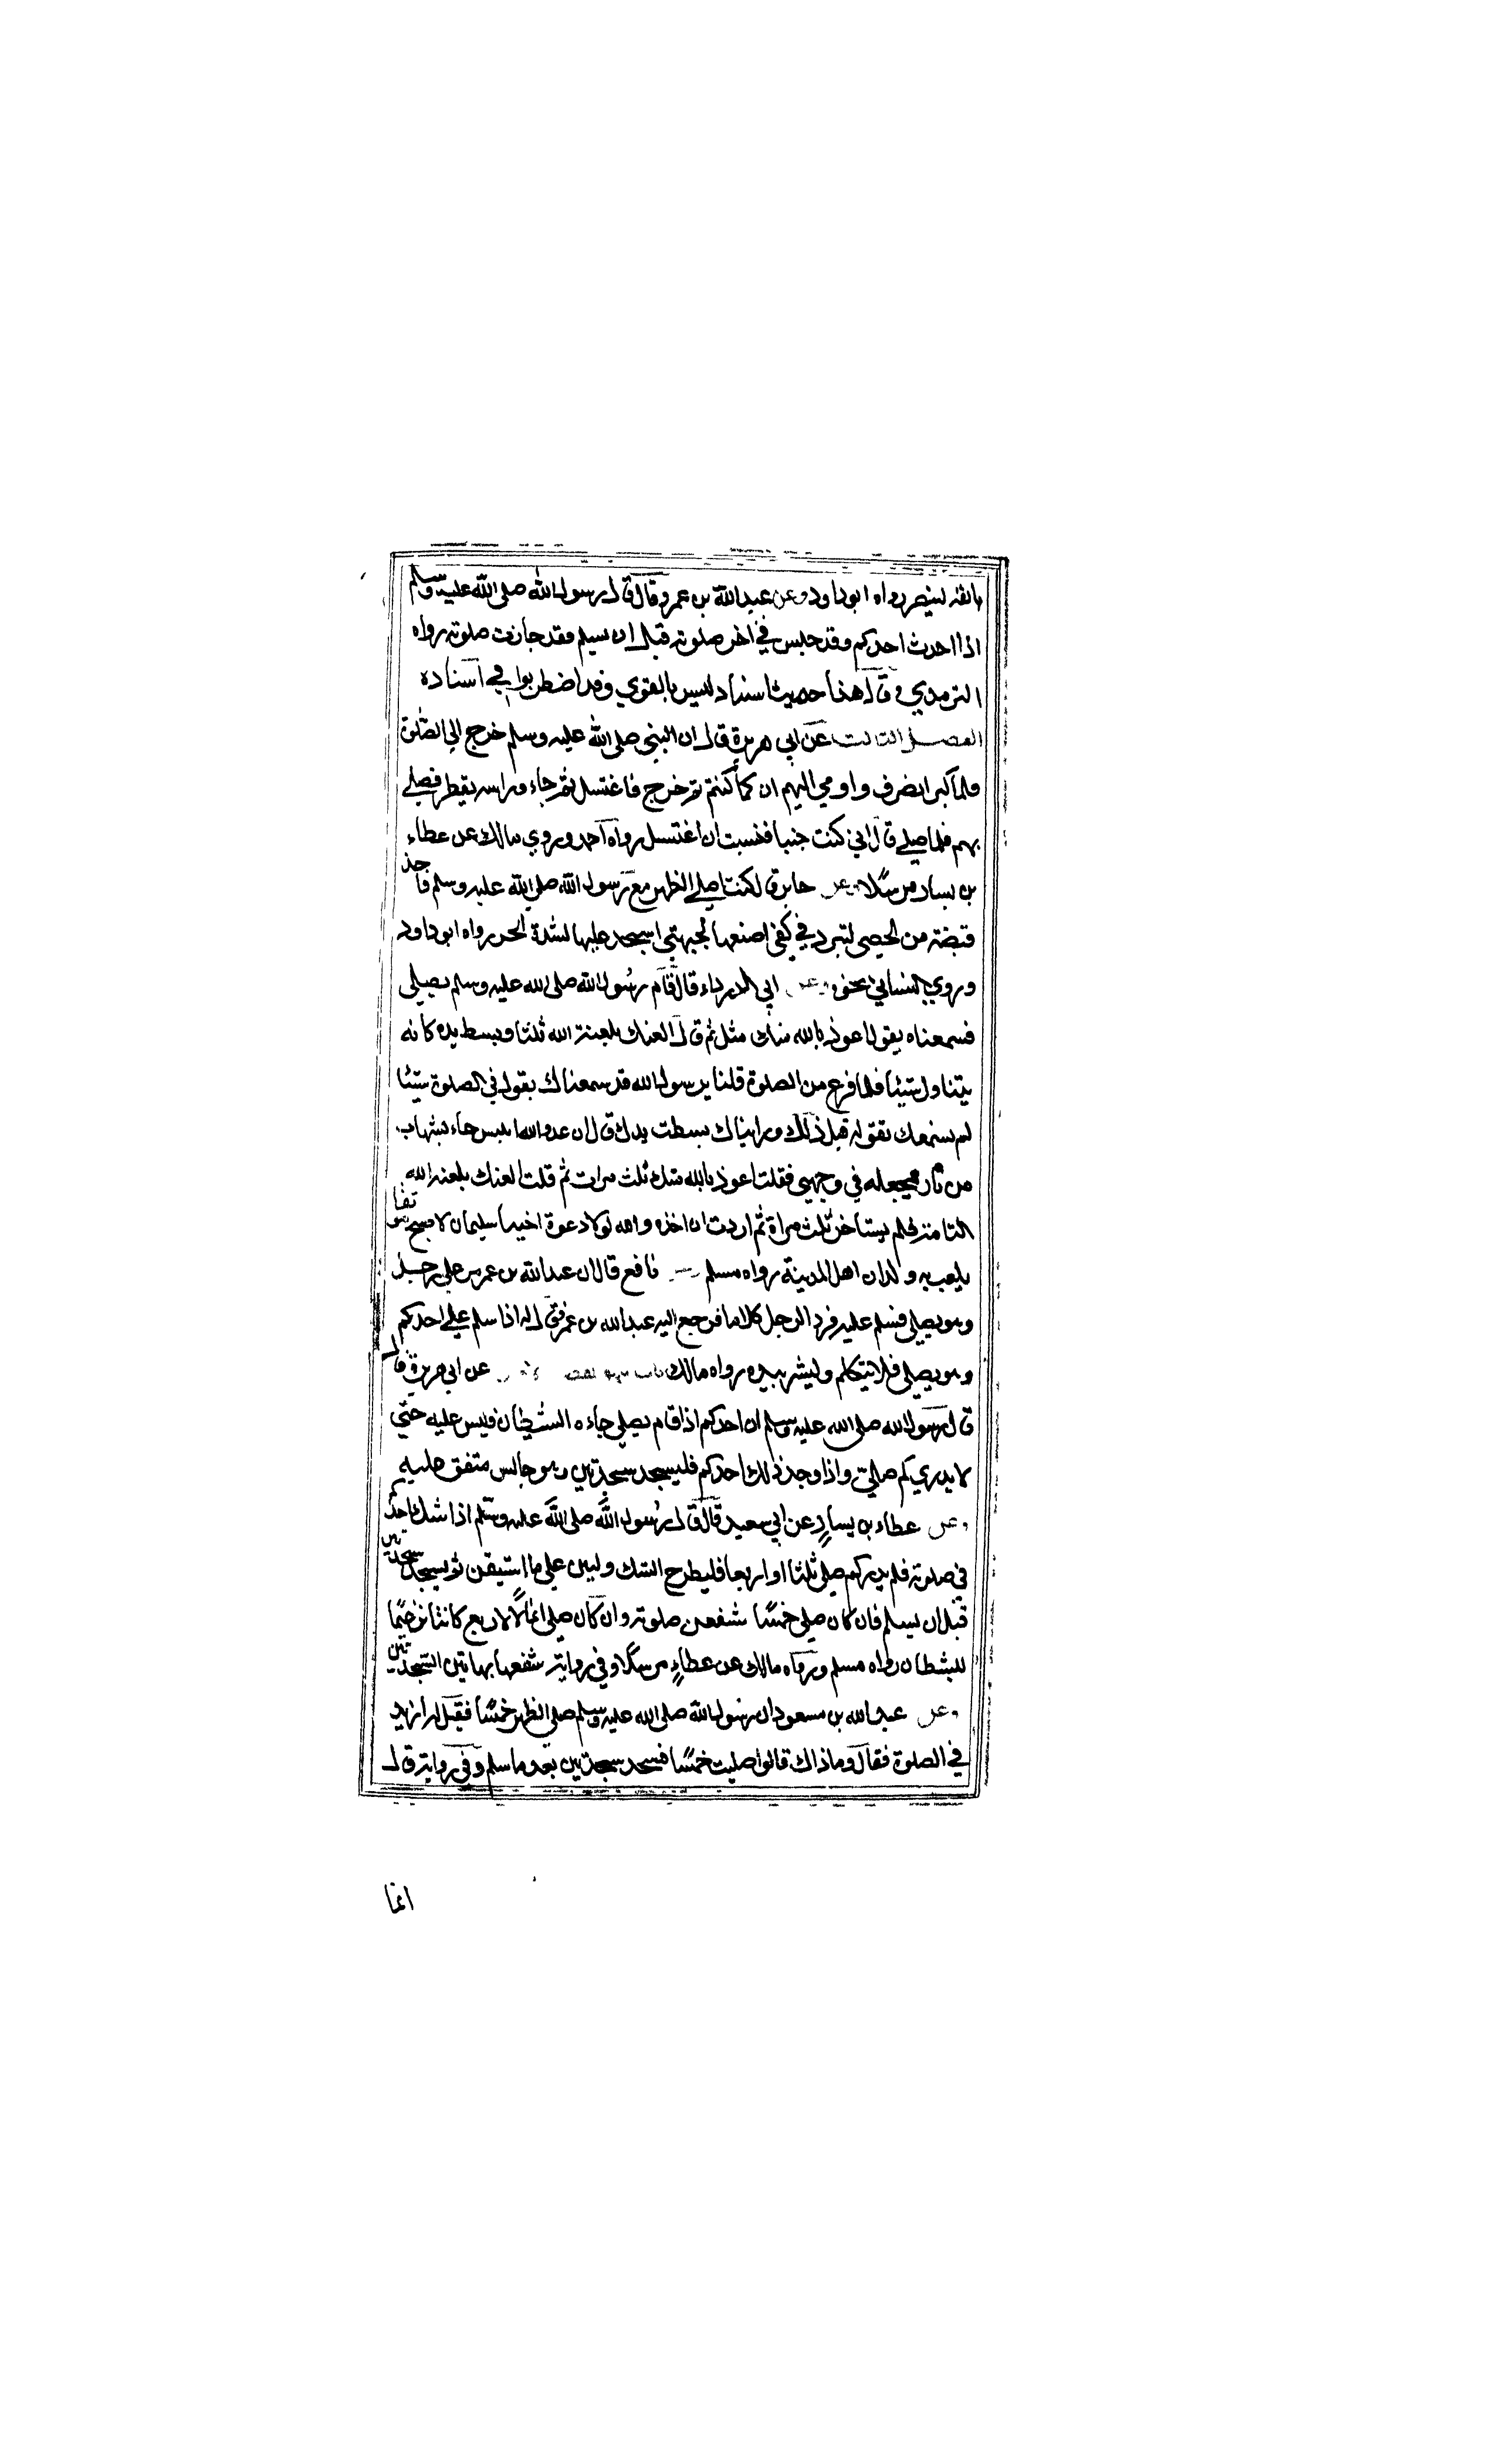 بانفه لينصر رواه ابوداود وعن عبدالله بن عمرو قال قال رسول الله صلى الله عليه وسلم
اذا احدث احدكم وقد جلس في اخر صلوته قبل ان يسلم فقد جازت صلوته رواه
الترمدي وقال هذا حديث اسناد ليس بالقوي وقد اضطربوا في اسناده
الفصل الثالث عن ابي هريرة قال ان النبي صلى الله عليه وسلم خرج الي الصلوة
فلما كبر انصرف واومي اليهم ان كما كنتم ثم خرج فاغتسل ثم جاء وراسه يقطر فصلي
بهم فلما صلي قال اني كنت جنبا فنسيت ان اغتسل رواه احمد وروي مالك عن عطاء
بن يسار مرسلا وعن جابر قال كنت اصلي الظهر مع رسول الله صلي الله عليه وسلم فاخذ
قبضة من الحصي لتبرد في كفي اضعها لجبهتي اسجد عليها لشدة الحر رواه ابوداود
وروي النسائي نحوه وعن ابي الدرداء قال قام رسول الله صلى الله عليه وسلم يصلي
فسمعناه يقول اعوذ بالله منك مثل ثم قال العنك بلعنة الله ثلثا وبسط يده كانه
يتناول شيئا فلما فرغ من الصلوة قلنا يرسول الله قد سمعناك يقول في الصلوة شيئا
لم نسمعك تقوله قبل ذلك ورايناك بسطت يدك قال ان عدو الله ابليس جاء بشهاب
من نار ليجعله في وجهي فقلت اعوذ بالله منك ثلث مرات ثم قلت العنك بلعنة الله
التامة فلم يستاخر ثلث مراة ثم اردت ان اخذه والله لولا دعوة اخينا سليمان لاصبح موثقا
يلعب به ولدان اهل المدينة رواه مسلم وعن نافع قال ان عبدالله بن عمر مر علي رجل
وهو يصلي فسلم عليه فرد الرجل كلاما فرجع اليه عبدالله بن عمر فقال له اذا سلم علي احدكم
وهو يصلي فلا يتكلم وليشر بيده رواه مالك باب عن ابي هريرة قال
قال رسول الله صلى الله عليه وسلم ان احدكم اذا قام يصلي جاءه الشيطان فلبس عليه حتي
لا يدري كم صلي واذا وجد ذلك احدكم فليسجد سجدتين وهو جالس متفق عليه
وعن عطاء بن يسار عن ابي سعيد قال قال رسول الله صلى الله عليه وسلم اذا شك احدكم
في صلوته فلم يدر كم صلي ثلثا او اربعا فليطرح الشك وليبن علي ما استيقن ثم يسجد سجدتين
قبل ان يسلم فان كان صلي خمسا شفعن صلوته وان كان صلي اتماما لاربع كانتا ترغيما
للشيطان رواه مسلم ورواه مالك عن عطاء مرسلا وفي رواية شفعها بهاتين السجدتين
وعن عبدالله بن مسعود ان رسول الله صلى الله عليه وسلم صلي الظهر خمسا فقيل له ازيد
في الصلوة فقال وما ذاك قالوا صليت خمسا فسجد سجدتين بعد ما سلم وفي رواية قال
انما